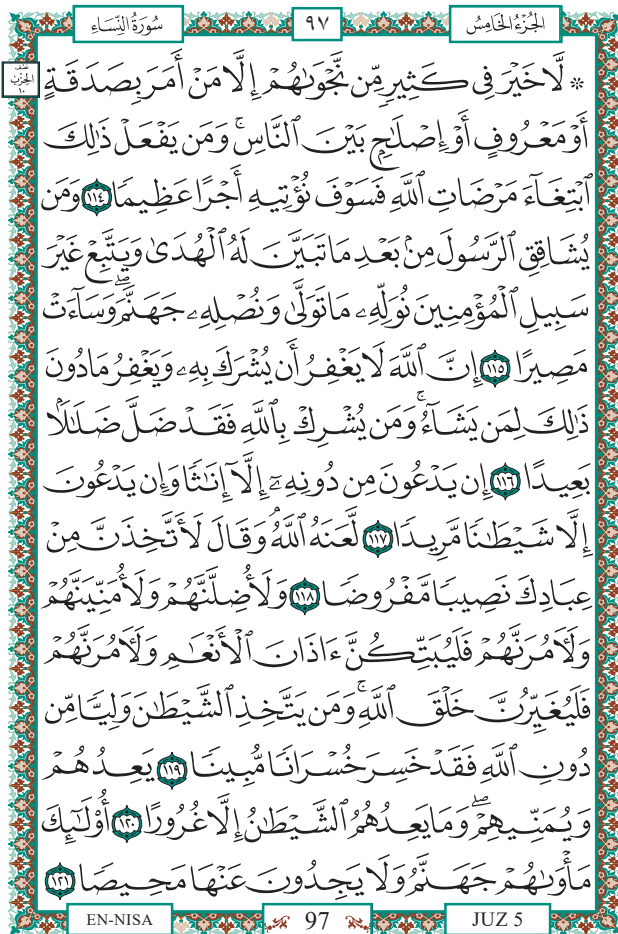 الجُزْءُ الخَامِسُ ٩٧ سُورَةُ النِّسَاءِ
نصف
الحزب
١٠
۞ لَّا خَيْرَ فِى كَثِيرٍ مِّن نَّجْوَىٰهُمْ إِلَّا مَنْ أَمَرَ بِصَدَقَةٍ
أَوْ مَعْرُوفٍ أَوْ إِصْلَٰحٍۭ بَيْنَ ٱلنَّاسِ ۚ وَمَن يَفْعَلْ ذَٰلِكَ
ٱبْتِغَآءَ مَرْضَاتِ ٱللَّهِ فَسَوْفَ نُؤْتِيهِ أَجْرًا عَظِيمًا ١١٤ وَمَن
يُشَاقِقِ ٱلرَّسُولَ مِنۢ بَعْدِ مَا تَبَيَّنَ لَهُ ٱلْهُدَىٰ وَيَتَّبِعْ غَيْرَ
سَبِيلِ ٱلْمُؤْمِنِينَ نُوَلِّهِۦ مَا تَوَلَّىٰ وَنُصْلِهِۦ جَهَنَّمَ ۖ وَسَآءَتْ
مَصِيرًا ١١٥ إِنَّ ٱللَّهَ لَا يَغْفِرُ أَن يُشْرَكَ بِهِۦ وَيَغْفِرُ مَا دُونَ
ذَٰلِكَ لِمَن يَشَآءُ ۚ وَمَن يُشْرِكْ بِٱللَّهِ فَقَدْ ضَلَّ ضَلَٰلًۢا
بَعِيدًا ١١٦ إِن يَدْعُونَ مِن دُونِهِۦٓ إِلَّآ إِنَٰثًا وَإِن يَدْعُونَ
إِلَّا شَيْطَٰنًا مَّرِيدًا ١١٧ لَّعَنَهُ ٱللَّهُ ۘ وَقَالَ لَأَتَّخِذَنَّ مِنْ
عِبَادِكَ نَصِيبًا مَّفْرُوضًا ١١٨ وَلَأُضِلَّنَّهُمْ وَلَأُمَنِّيَنَّهُمْ
وَلَءَامُرَنَّهُمْ فَلَيُبَتِّكُنَّ ءَاذَانَ ٱلْأَنْعَٰمِ وَلَءَامُرَنَّهُمْ
فَلَيُغَيِّرُنَّ خَلْقَ ٱللَّهِ ۚ وَمَن يَتَّخِذِ ٱلشَّيْطَٰنَ وَلِيًّا مِّن
دُونِ ٱللَّهِ فَقَدْ خَسِرَ خُسْرَانًا مُّبِينًا ١١٩ يَعِدُهُمْ
وَيُمَنِّيهِمْ ۖ وَمَا يَعِدُهُمُ ٱلشَّيْطَٰنُ إِلَّا غُرُورًا ١٢٠ أُو۟لَٰٓئِكَ
مَأْوَىٰهُمْ جَهَنَّمُ وَلَا يَجِدُونَ عَنْهَا مَحِيصًا ١٢١
EN-NISA 97 JUZ 5